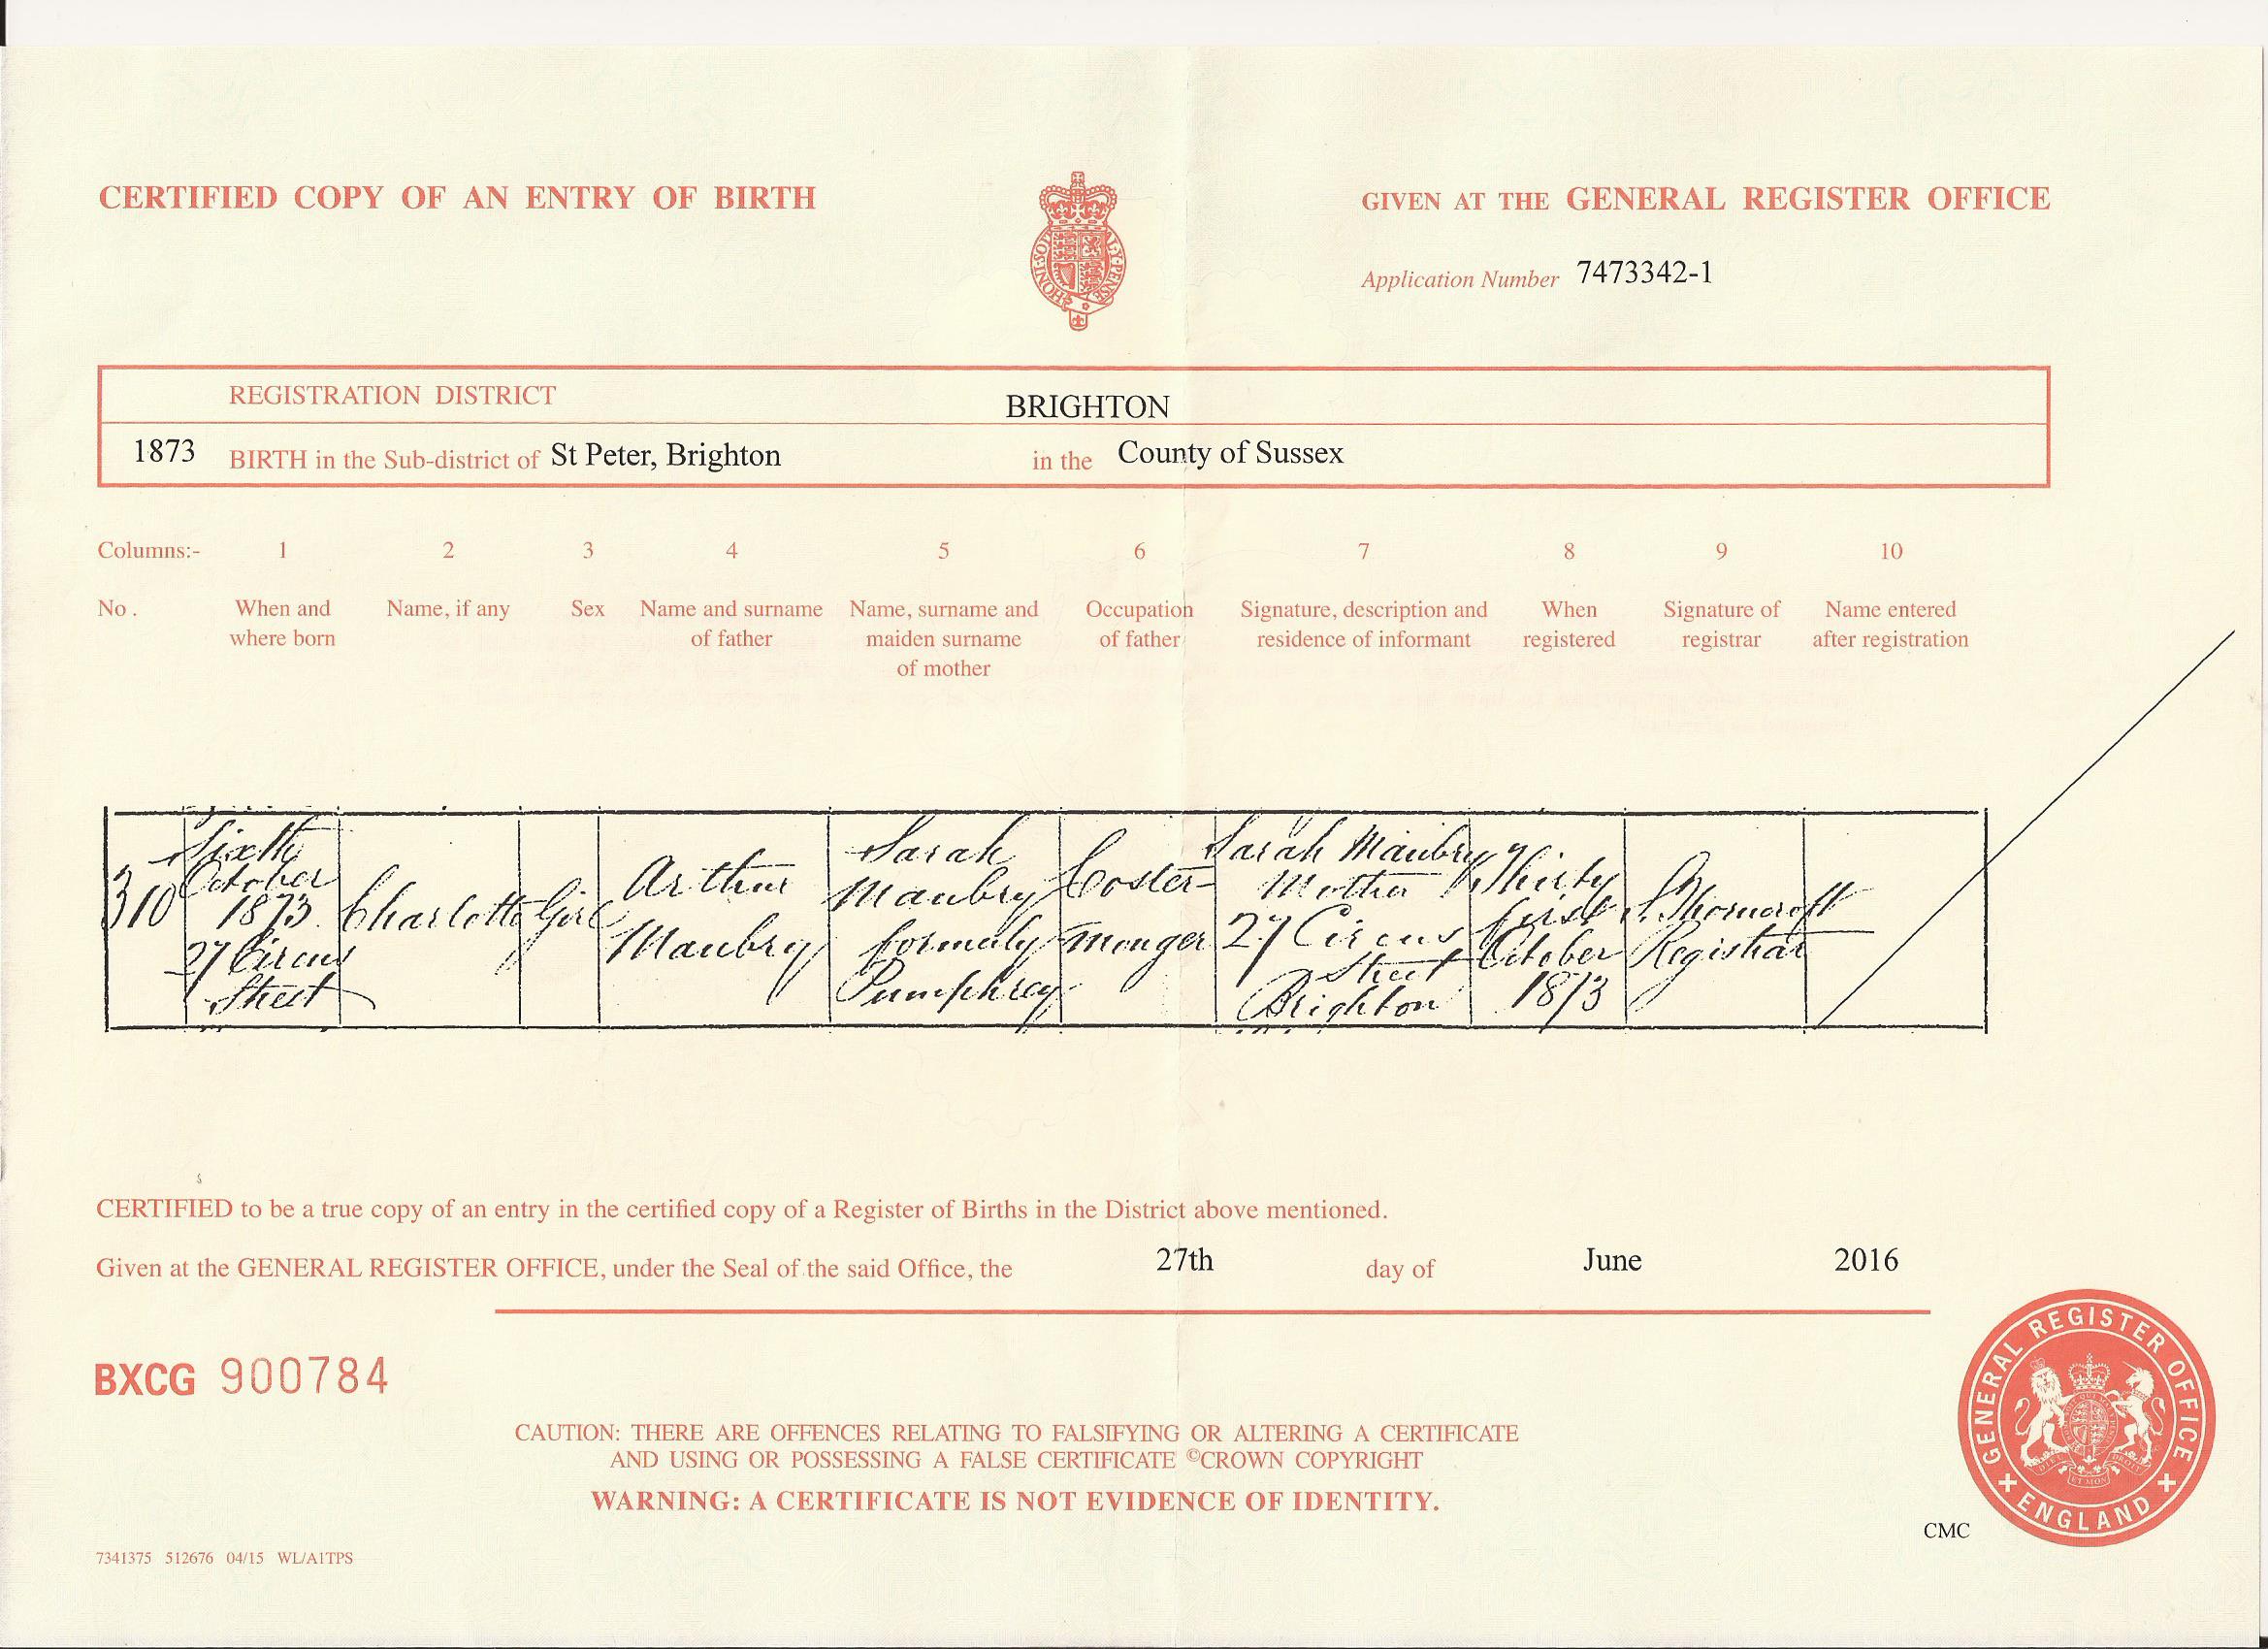 CERTIFIED COPY OF AN ENTRY OF BIRTH
GIVEN AT THE GENERAL REGISTER OFFICE
HONI·SOIT AL·Y·PENSE
Application Number 7473342-1
REGISTRATION DISTRICT BRIGHTON
1873 BIRTH in the Sub-district of St Peter, Brighton in the County of Sussex
Columns:- 1 2 3 4 5 6 7 8 9 10
No. When and Name, if any Sex Name and surname Name, surname and Occupation Signature, description and When Signature of Name entered
where born of father maiden surname of father residence of informant registered registrar after registration
of mother
310
Sixth
October
1873
27 Circus
Street
Charlotte
Girl
Arthur
Maubry
Sarah
Maubry
formaly
Pumphrey
Coster-
monger
Sarah Maubry
Mother
27 Circus
Street
Brighton
Thirty
first
October
1873
Thorncroft
Registrar
CERTIFIED to be a true copy of an entry in the certified copy of a Register of Births in the District above mentioned.
Given at the GENERAL REGISTER OFFICE, under the Seal of the said Office, the 27th day of June 2016
BXCG 900784
CAUTION: THERE ARE OFFENCES RELATING TO FALSIFYING OR ALTERING A CERTIFICATE
AND USING OR POSSESSING A FALSE CERTIFICATE ©CROWN COPYRIGHT
WARNING: A CERTIFICATE IS NOT EVIDENCE OF IDENTITY.
GENERAL REGISTER OFFICE
ENGLAND
CMC
7341375 512676 04/15 WL/A1TPS